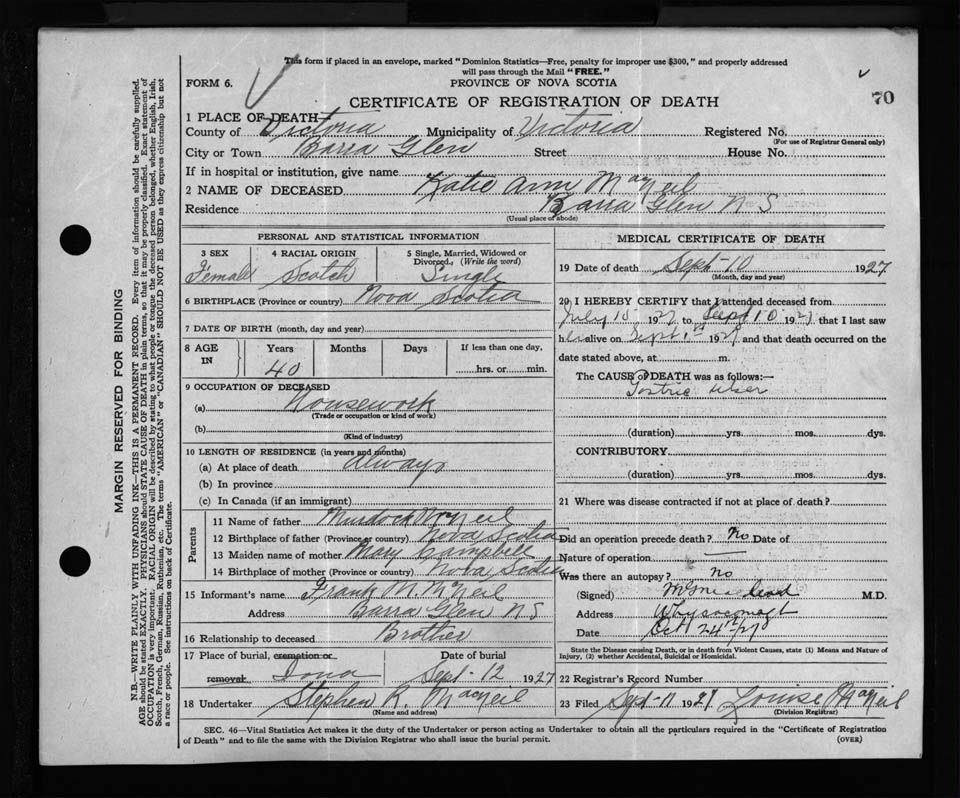 This form if placed in an envelope, marked "Dominion Statistics—Free, penalty for improper use $300," and properly addressed
will pass through the Mail "FREE."
FORM 6.
PROVINCE OF NOVA SCOTIA
CERTIFICATE OF REGISTRATION OF DEATH
70
1 PLACE OF DEATH—
County of Victoria Municipality of Victoria Registered No.
(For use of Registrar General only)
City or Town Barra Glen Street House No.
If in hospital or institution, give name
2 NAME OF DECEASED Katie Ann MacNeil
Residence Barra Glen N S
(Usual place of abode)
PERSONAL AND STATISTICAL INFORMATION
3 SEX 4 RACIAL ORIGIN 5 Single, Married, Widowed or
Divorced, (Write the word)
Female Scotch Single
6 BIRTHPLACE (Province or country) Nova Scotia
7 DATE OF BIRTH (month, day and year)
8 AGE IN Years Months Days If less than one day,
40 hrs. or min.
9 OCCUPATION OF DECEASED
(a) Housework
(Trade or occupation or kind of work)
(b)
(Kind of industry)
10 LENGTH OF RESIDENCE (in years and months)
(a) At place of death always
(b) In province
(c) In Canada (if an immigrant)
Parents
11 Name of father Murdoch McNeil
12 Birthplace of father (Province or country) Nova Scotia
13 Maiden name of mother Mary Campbell
14 Birthplace of mother (Province or country) Nova Scotia
15 Informant's name Frank M. McNeil
Address Barra Glen N S
16 Relationship to deceased Brother
17 Place of burial, cremation or Date of burial
removal Iona Sept 12 1927
18 Undertaker Stephen R. MacNeil
(Name and address)
MEDICAL CERTIFICATE OF DEATH
19 Date of death Sept 10 1927
(Month, day and year)
20 I HEREBY CERTIFY that I attended deceased from
July 15 1927 to Sept 10 1927 that I last saw
her alive on Sept 1st 1927 and that death occurred on the
date stated above, at m.
The CAUSE of DEATH was as follows:—
Gastric ulcer
(duration) yrs. mos. dys.
CONTRIBUTORY
(duration) yrs. mos. dys.
21 Where was disease contracted if not at place of death?
Did an operation precede death? No Date of
Nature of operation
Was there an autopsy? no
(Signed) M.D.
Address Whycocomagh
Date Oct 24th/27
State the Disease causing Death, or in death from Violent Causes, state (1) Means and Nature of
Injury, (2) whether Accidental, Suicidal or Homicidal.
22 Registrar's Record Number
23 Filed Sept 11 1927 Louise MacNeil
(Division Registrar)
SEC. 46—Vital Statistics Act makes it the duty of the Undertaker or person acting as Undertaker to obtain all the particulars required in the "Certificate of Registration
of Death" and to file the same with the Division Registrar who shall issue the burial permit.
(OVER)
MARGIN RESERVED FOR BINDING
N.B.—WRITE PLAINLY WITH UNFADING INK—THIS IS A PERMANENT RECORD. Every item of information should be carefully supplied.
AGE should be stated EXACTLY. PHYSICIANS should STATE CAUSE OF DEATH in plain terms, so that it may be properly classified. Exact statement of
OCCUPATION is very important. RACIAL ORIGIN will be described by stating to what people or tongue the deceased person belonged, whether English, Irish,
Scotch, French, German, Russian, Ruthenian, etc. The terms "AMERICAN" or "CANADIAN" SHOULD NOT BE USED as they express citizenship but not
a race or people. See instructions on back of Certificate.